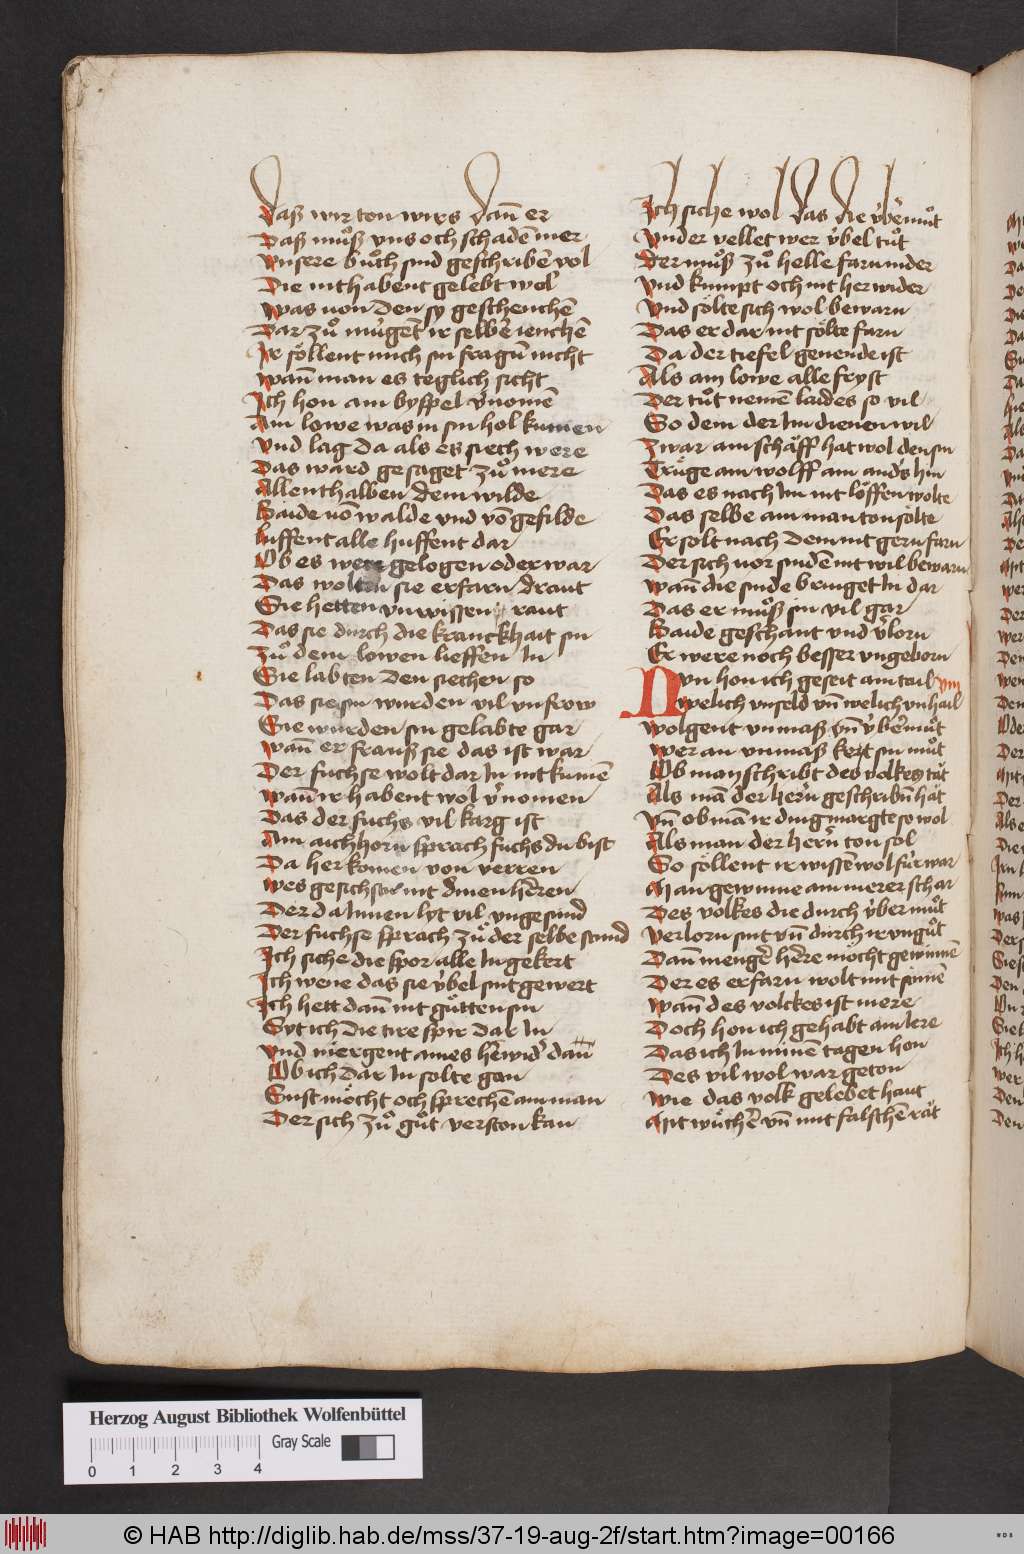 Daß wir ton wirs dañ er
Daß muͦß vns och schadē mer
Vnsere buͦch sind geschribē vol
Die nit habent gelebt wol
Was von den sy geschenchē
Dar zuͦ mügēt ir selbē ienchē
Ir söllent mich sin fragū nicht
Wañ man es teglich sicht
Ich hon am byspel v̄nomē
Am lowe was in sin hol kumen
Vnd lag da als es siech were
Das ward gesaget zuͦ mere
Allenthalben dem wilde
Baide võ walde vnd võ gefilde
Luffent alle huffent dar
Ob es were gelogen oder war
Das wolten sie erfarn drant
Sie hetten vnwissen raut
Das sie durch die kranckhait sin
Zuͦ dem lowen lieffen In
Sie labten den siechen so
Das sie sin wurden vil vnfrow
Sie wurden sin gelabte gar
Wañ er frauß sie das ist war
Der fuchse wolt dar In nit kumē
Wañ ir habent wol v̄nomen
Das der fuchs vil karg ist
Am aichhorn sprach fuchs du bist
Da her komen von verren
Wes gesichstu nit dinen herren
Der da Innen lyt vil vngesund
Der fuchse sprach zuͦ der selbe stund
Ich siche die spor alle In gekert
Ich wene das sie v̇bel sint gewert
Ich hett dañ nit guͤtten sin
Syt ich die tire spir dar In
Vnd niergent aines h̄wid̄ dañ
Ob ich dar In solte gan
Sust möcht och sprechē am man
Der sich zuͦ guͦt verston kan
Ich siche wol das die v̇bermuͦt
Vnder vellet wer v̇bel tuͦt
Der muͦß zuͦ helle farn nider
Vnd kumpt och nit her wider
Vnd sölte sich wol bewarn
Das er dar nit sölte farn
Da der tiefel genende ist
Als am lowe alle fryst
Der tuͦt nemē laides so vil
So dem der Im dienen wil
Zwar am schäff hat wol den sin
Trüge am wolff am and̄s hin
Das es nach Im nit löffen wolte
Das selbe am man ton sölte
Er solt nach dem nit gern farn
Der sich vor sindē nit wil bewarn
Wañ die sinde bringet In dar
Das er muͦß sin vil gar
Baide geschant vnd v̄lorn
Er were noch besser vngeborn
Nvn hon ich geseit am tail
Welich vnseld vñ welich vnhail
Wolgent vnmaß vñ v̇bermuͦt
Wer an vnmaß kert sin muͦt
Ob man schribt des volkes tät
Als mā der hern geschribñ hät
Vñ ob mā ir ding margte so wol
Als man der hern ton sol
So söllent ir wissē wol fúr war
Man gewinne am merer schar
Des volkes die durch v̇bermuͦt
Verlorn sint vñ durch ir vnguͦt
Dan menger herre möcht gewinnē
Der es erfarn wolt mit sinnē
Wañ des volckes ist mere
Doch hon ich gehabt am lere
Das ich In minē tagen hon
Des vil wol war geton
Wie das volk gelebet haut
Mit wuͤchē vñ mit falschē rät
Herzog August Bibliothek Wolfenbüttel
Gray Scale
0 1 2 3 4
© HAB http://diglib.hab.de/mss/37-19-aug-2f/start.htm?image=00166